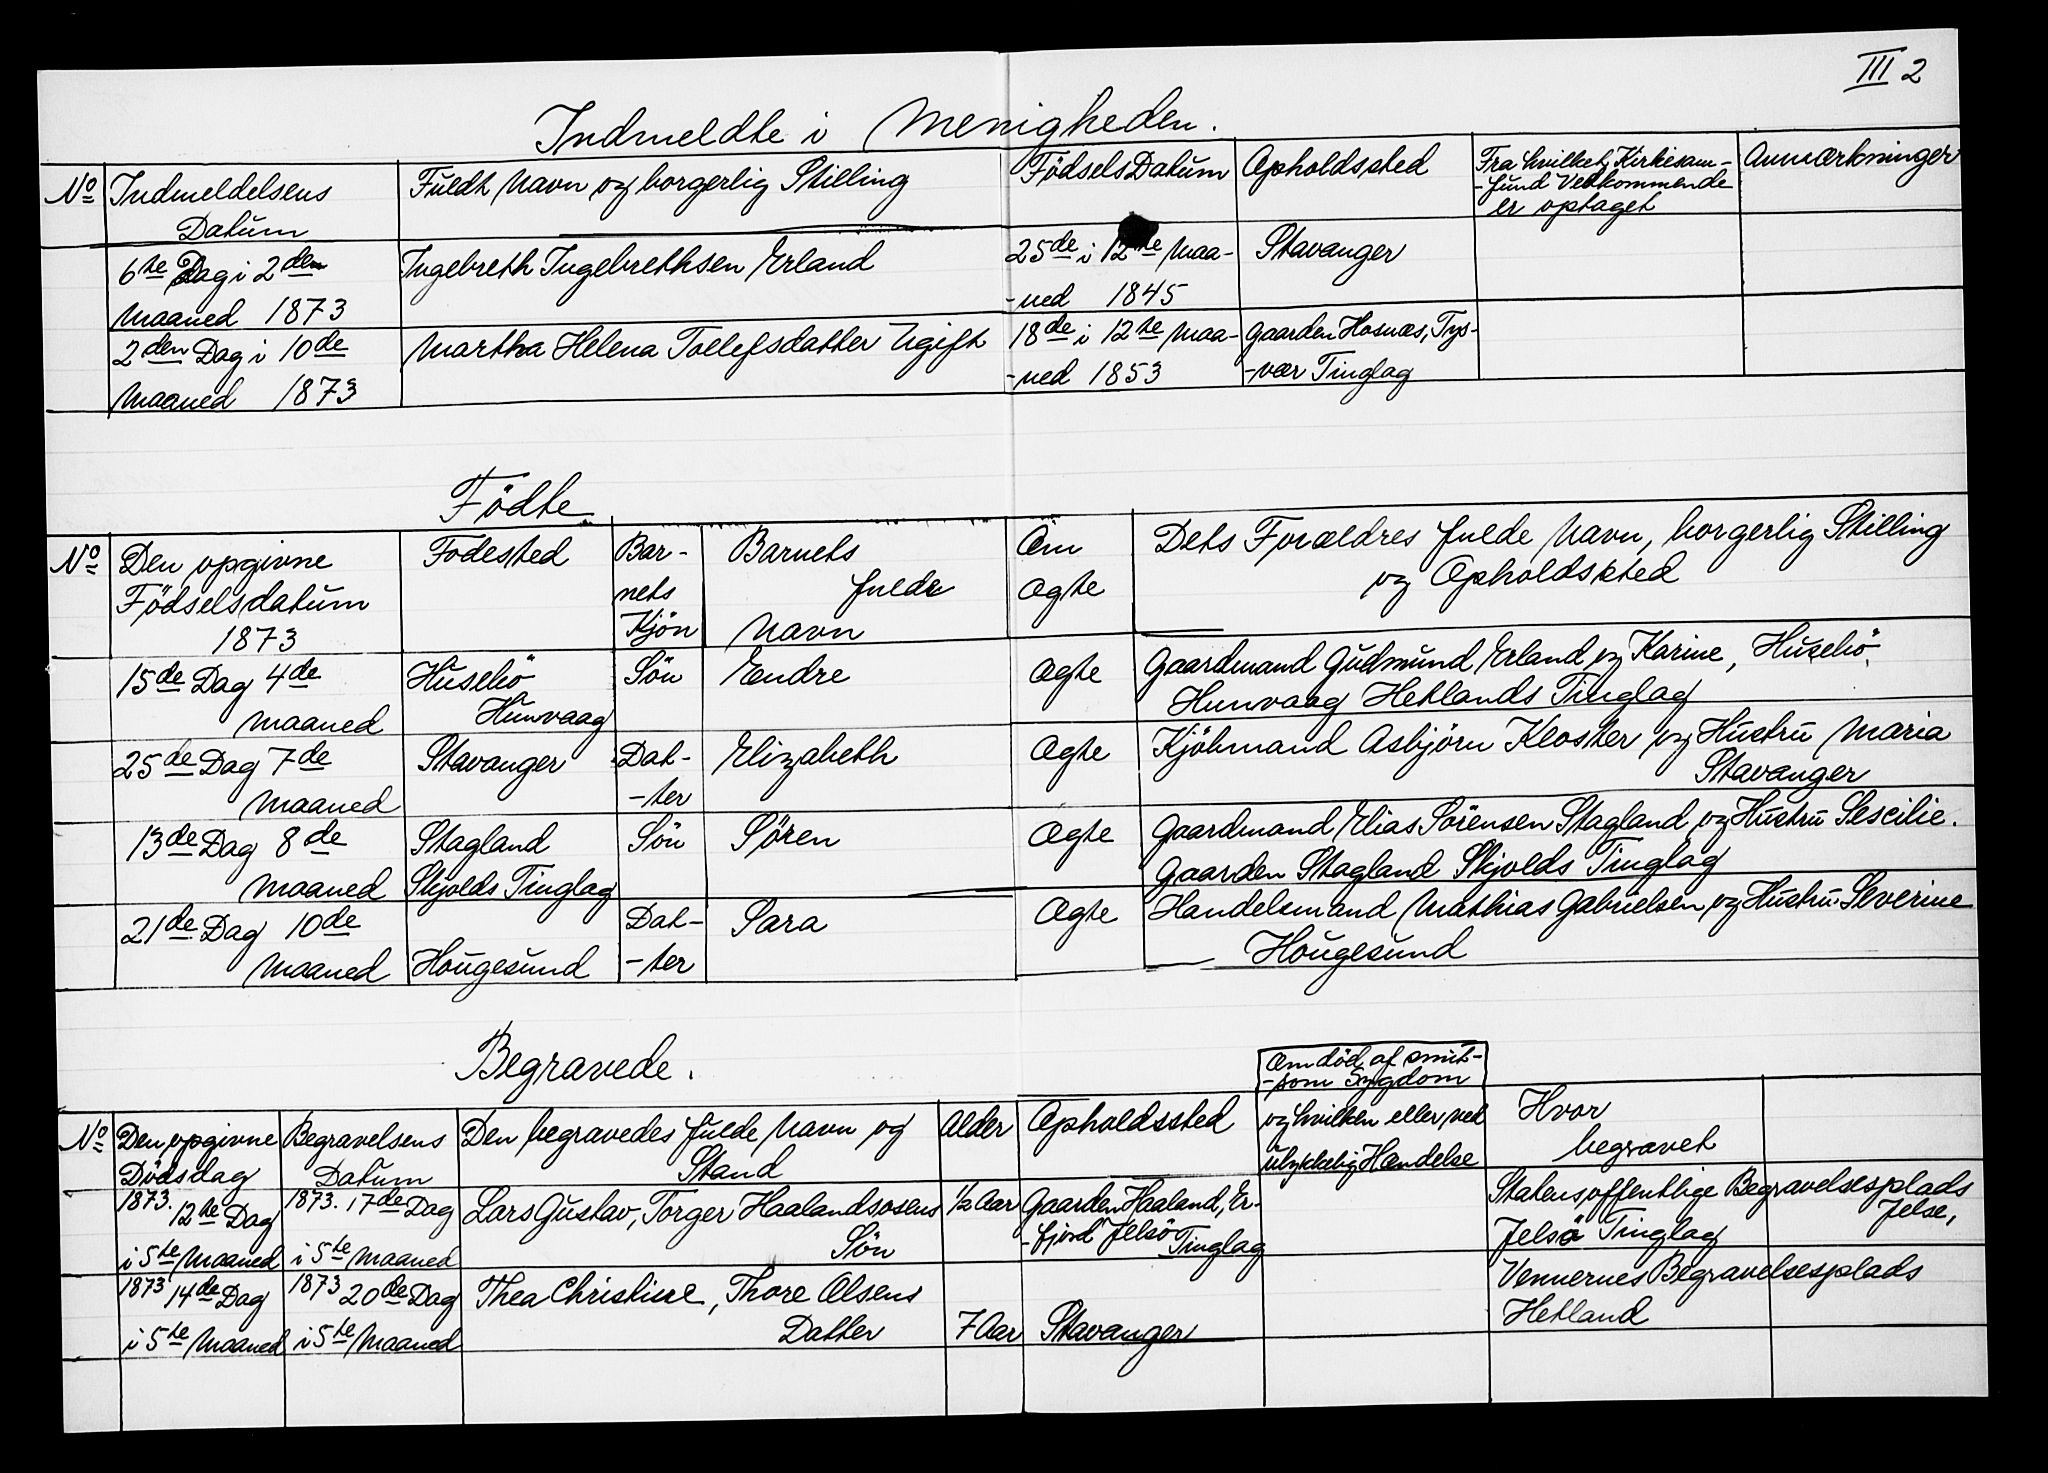 III 2
Indmeldte i Menigheden.
No Indmeldelsens Datum Fuldt Navn og borgerlig Stilling Födsels Datum Opholdssted Fra hvilket Kirkesam-
-fund Vedkommende
er optaget Anmærkninger
6te Dag i 2den Ingebreth Ingebrethsen Erland 25de i 12te Maa- Stavanger
Maaned 1873 -ned 1845
2den Dag i 10de Martha Helena Tollefsdatter Ugift 18de i 12te Maa- Gaarden Hosnæs, Tys-
Maaned 1873 -ned 1853 -vær Tinglag
Födte
No Den opgivne Fodested Bar- Barnets Om Dets Forældres fulde Navn, borgerlig Stilling
Födselsdatum nets fulde Ægte og Opholdssted
1873 Kjön Navn
15de Dag 4de Huselö Sön Endre Ægte Gaardmand Gudmund Erland og Karine, Huselö
Maaned Hunvaag Hunvaag Hetlands Tinglag
25de Dag 7de Stavanger Dat- Elizabeth Ægte Kjöbmand Asbjörn Kloster og Hustru Maria
Maaned -ter Stavanger
13de Dag 8de Stagland Sön Sören Ægte Gaardmand Elias Sörensen Stagland og Hustru Sescilie.
Maaned Skjolds Tinglag Gaarden Stagland Skjolds Tinglag
21de Dag 10de Dat- Sara Ægte Handelsmand Mathias Gabrielsen og Hustru Severine
Maaned Hougesund -ter Hougesund
Begravede.
Om död af smit-
-som Sygdom
No Den opgivne Begravelsens Den begravedes fulde Navn og Alder Opholdssted og hvilken eller ved Hvor
Dödsdag Datum Stand ulykkelig Hændelse begravet
1873. 12te Dag 1873. 17de Dag Lars Gustav, Torger Haalandsosens 1/2 Aar Gaarden Haaland, Er- Statens offentlige Begravelsesplads Jelse,
i 5te Maaned i 5te Maaned Sön -fjord Jelsö Tinglag Jelsö Tinglag
1873 14de Dag 1873 20de Dag Thea Christine, Thore Olsens Vennernes Begravelsesplads
i 5te Maaned i 5te Maaned Datter 7 Aar Stavanger Hetland